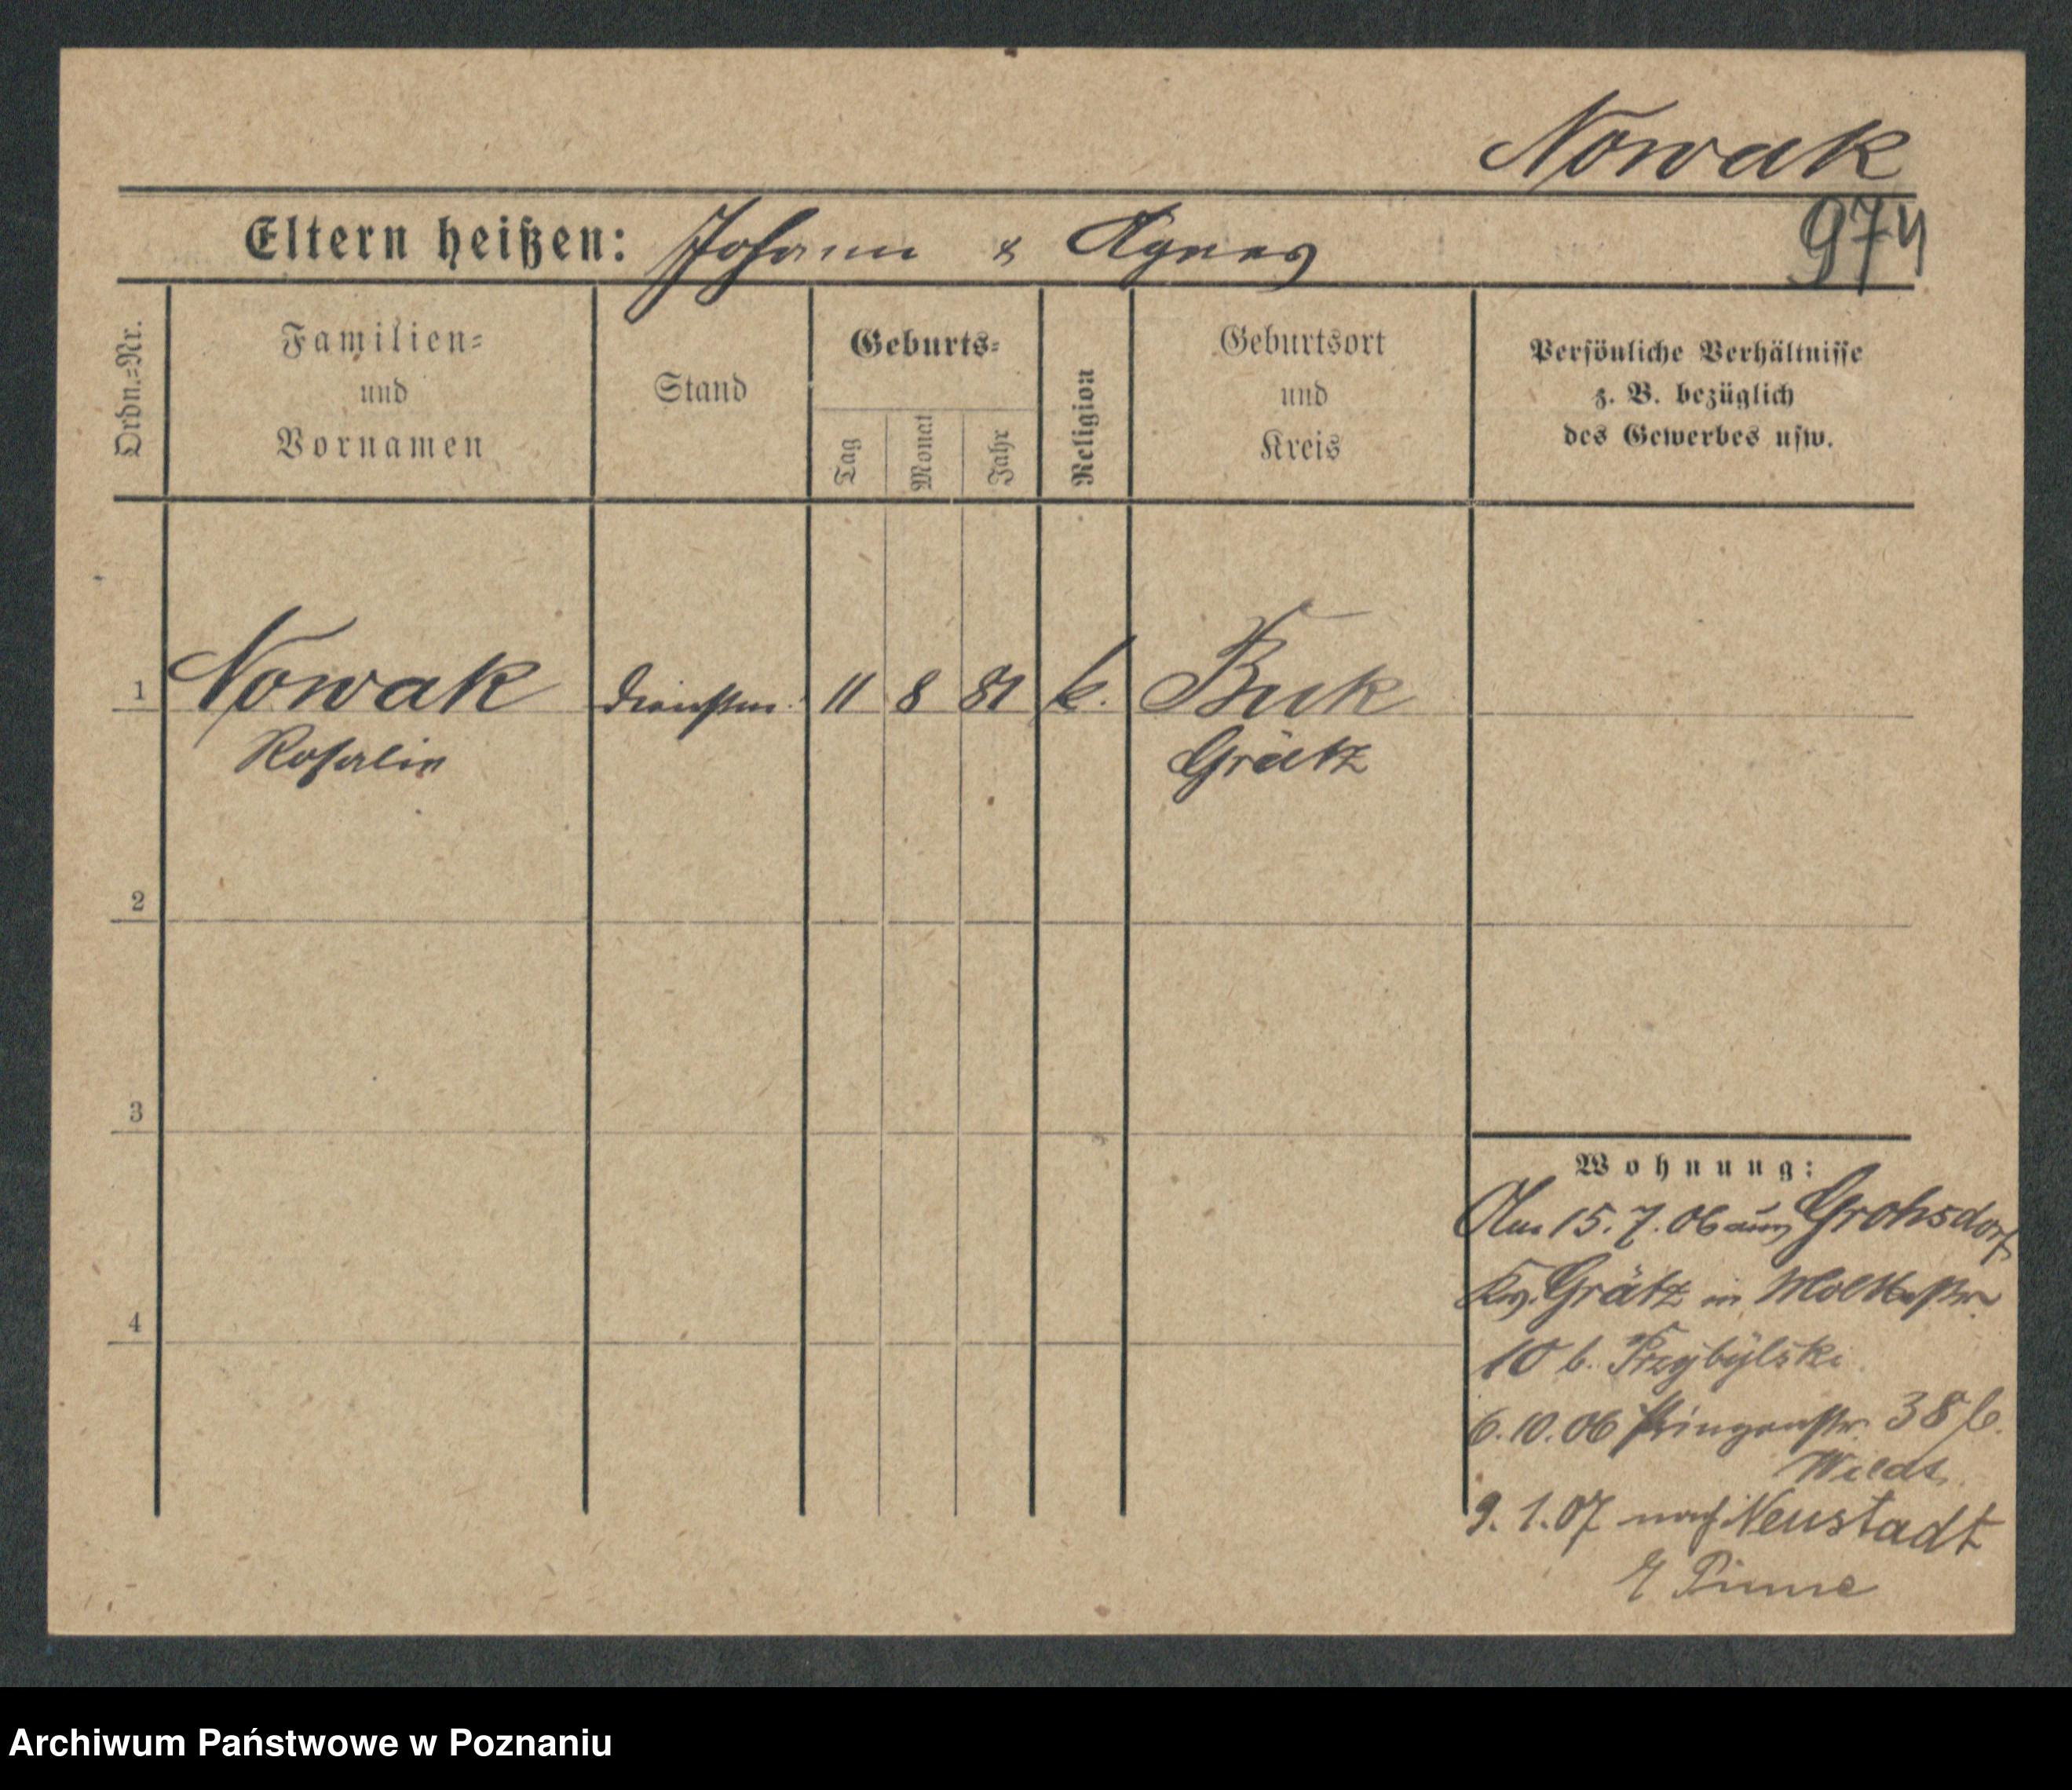 Nowak
Eltern heißen: Johann & Agnes
974
Ordn.=Nr.
Familien=
und
Vornamen
Stand
Geburts=
Tag
Monat
Jahr
Religion
Geburtsort
und
Kreis
Persönliche Verhältnisse
z. B. bezüglich
des Gewerbes usw.
1 Nowak Dienstm. 11 8 81 k. Buk
Rosalie Grätz
2
3
4
Wohnung:
Am 15. 7. 06 aus Grohsdorf
Krs. Grätz in Moltkestr.
10 b. Przybylski
6. 10. 06 Prinzenstr. 38 b.
9. 1. 07 nach Neustadt
Pinne
Archiwum Państwowe w Poznaniu